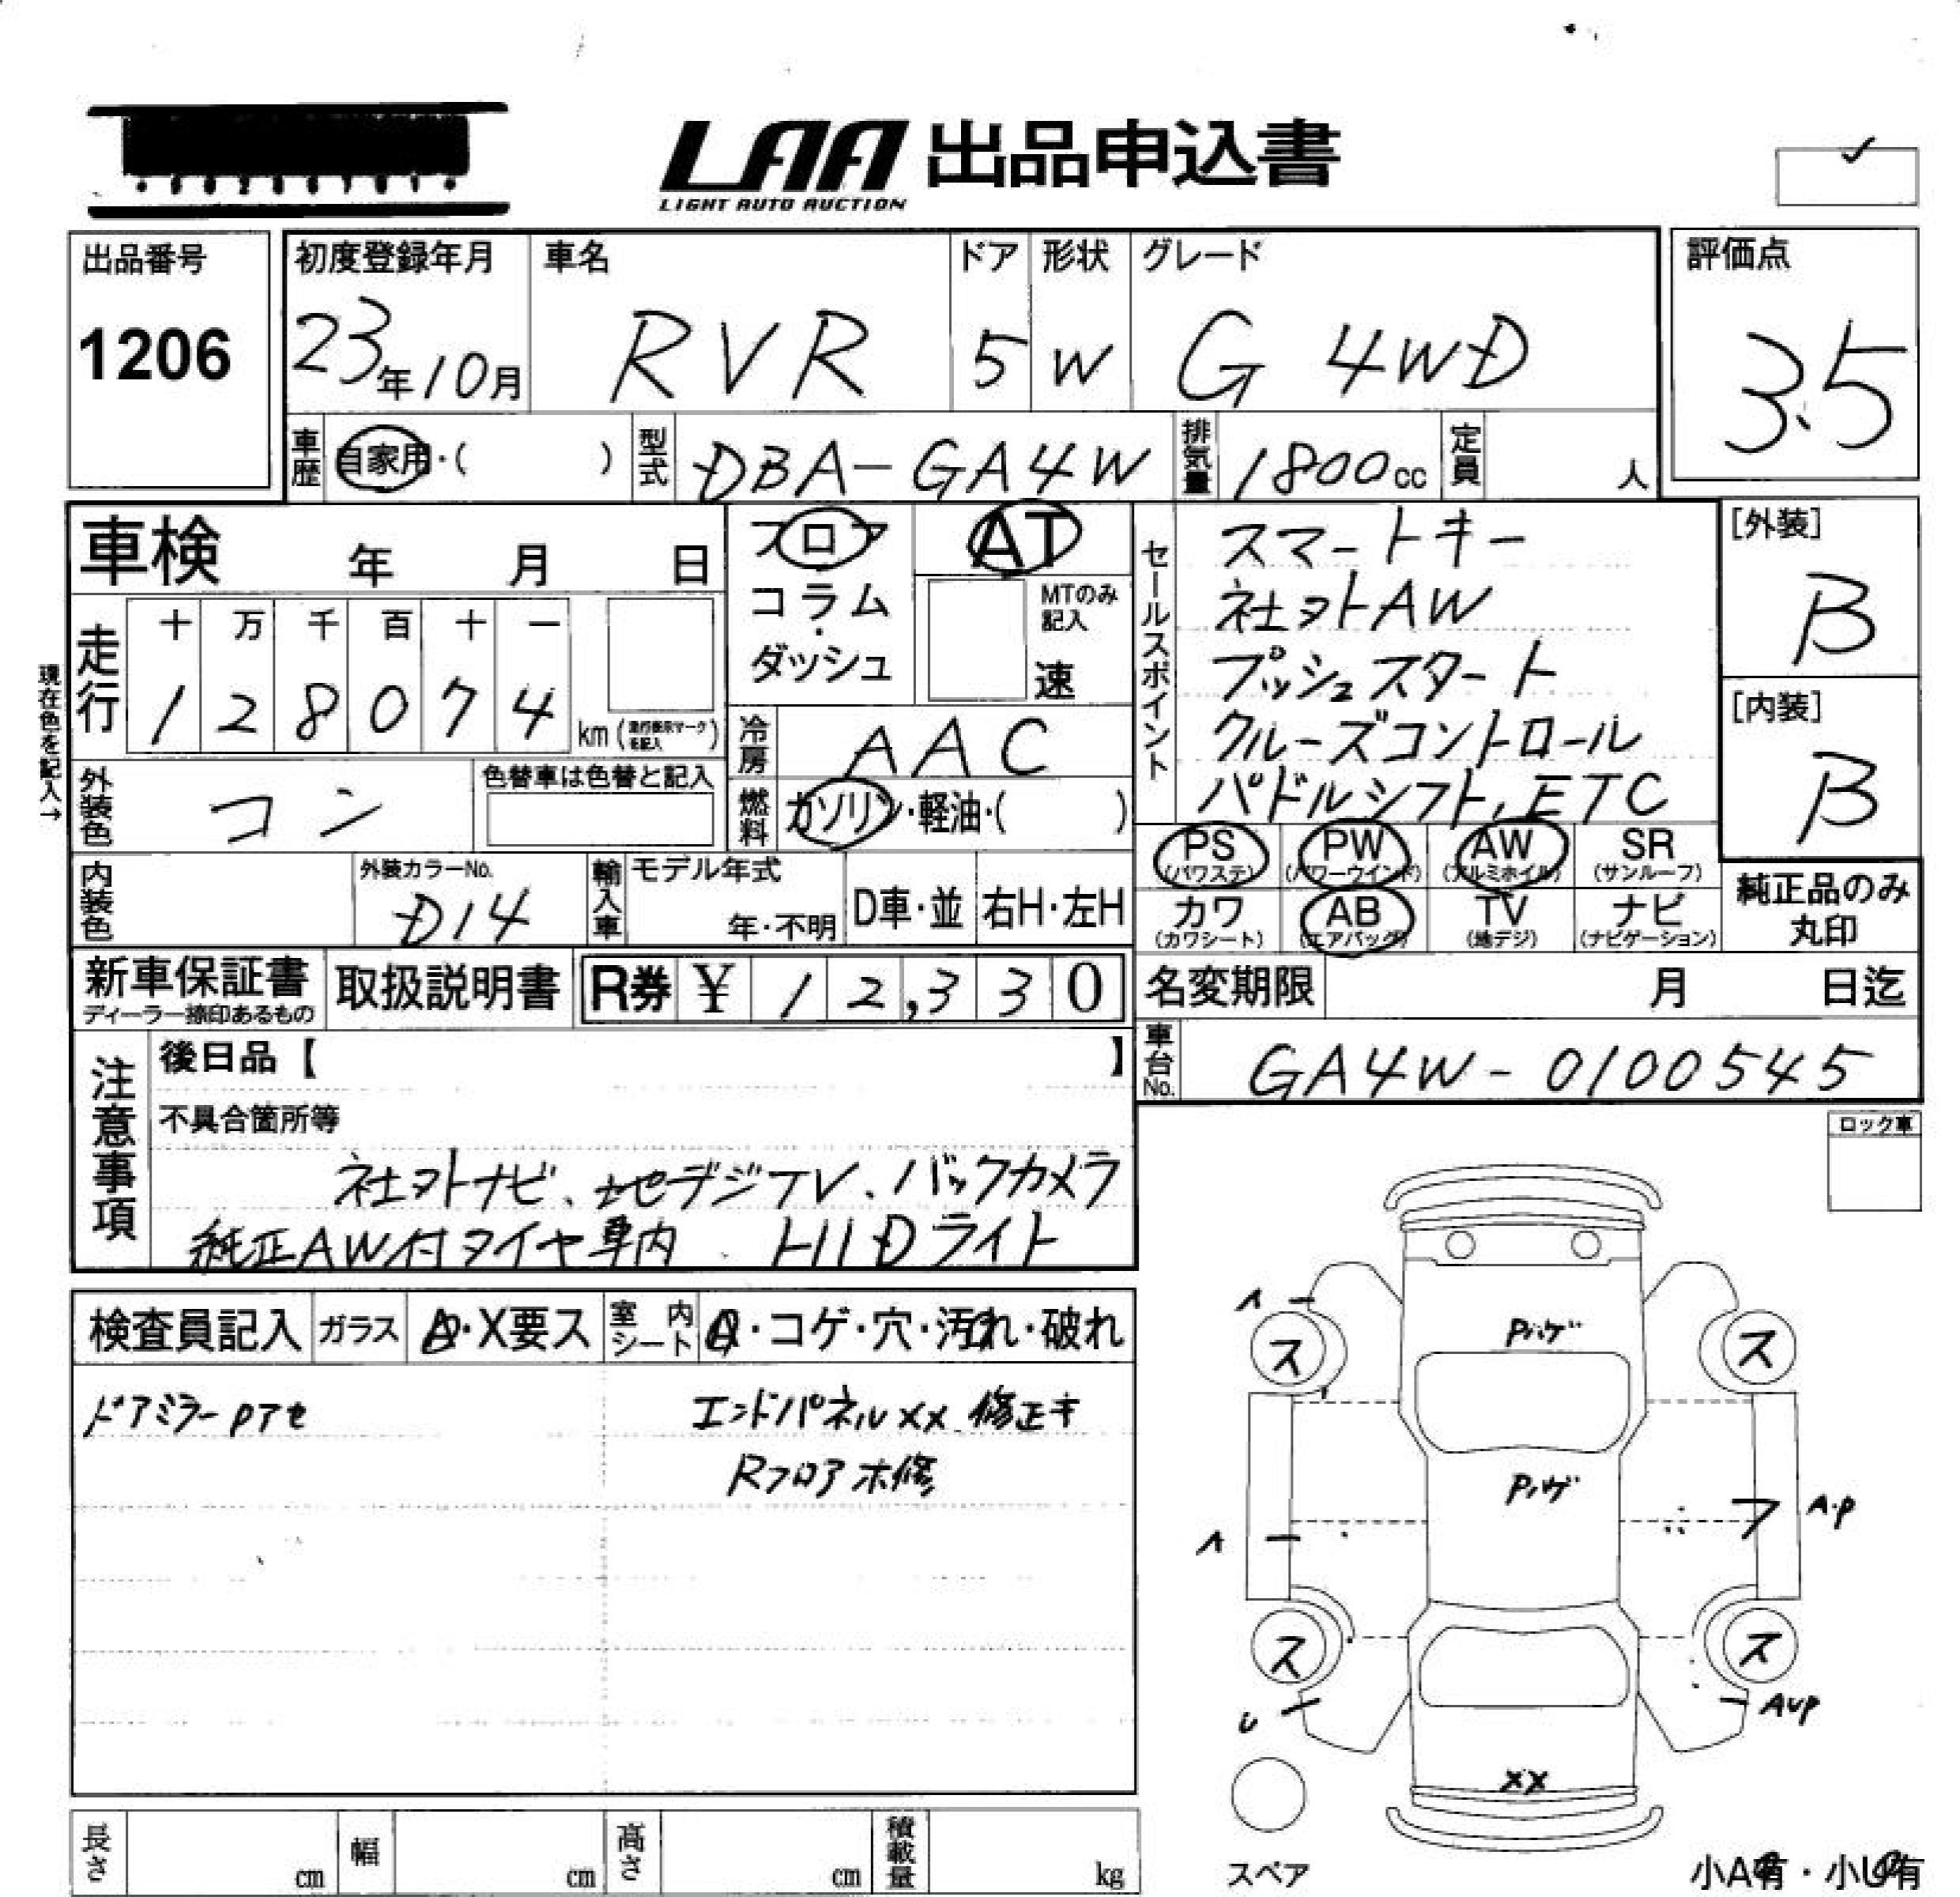 LAA 出品申込書
LIGHT AUTO AUCTION
出品番号
1206
初度登録年月
23年10月
車名
RVR
ドア
5
形状
W
グレード
G 4WD
評価点
3.5
車歴
自家用・( )
型式
DBA-GA4W
排気量
1800cc
定員
人
車検 年 月 日
現在色を記入→
走行
十 万 千 百 十 一
1 2 8 0 7 4
km (走行表示マークを記入)
フロア
コラム
・
ダッシュ
AT
MTのみ
記入
速
冷房
AAC
燃料
ガソリン・軽油・( )
セールスポイント
スマートキー
社外AW
プッシュスタート
クルーズコントロール
パドルシフト, ETC
[外装]
B
[内装]
B
外装色
コン
色替車は色替と記入
内装色
外装カラーNo.
D14
輸入車
モデル年式
年・不明
D車・並
右H・左H
PS
(パワステ)
PW
(パワーウインド)
AW
(アルミホイル)
SR
(サンルーフ)
カワ
(カワシート)
AB
(エアバッグ)
TV
(地デジ)
ナビ
(ナビゲーション)
純正品のみ
丸印
新車保証書
ディーラー捺印あるもの
取扱説明書
R券 ¥ 12,330
名変期限 月 日迄
車台No.
GA4W-0100545
注意事項
後日品【 】
不具合箇所等
社外ナビ、地デジTV、バックカメラ
純正AW付タイヤ車内
HIDライト
ロック車
検査員記入
ガラス
A・X要ス
室内シート
・コゲ・穴・汚れ・破れ
ドアミラーPアセ
エンドパネルXX 修正キ
Rフロア ホ修
A
ス
Pハゲ
ス
Pハゲ
A
A・P
ス
ス
U
AUP
XX
スペア
小A有・小U有
長さ cm
幅 cm
高さ cm
積載量 kg